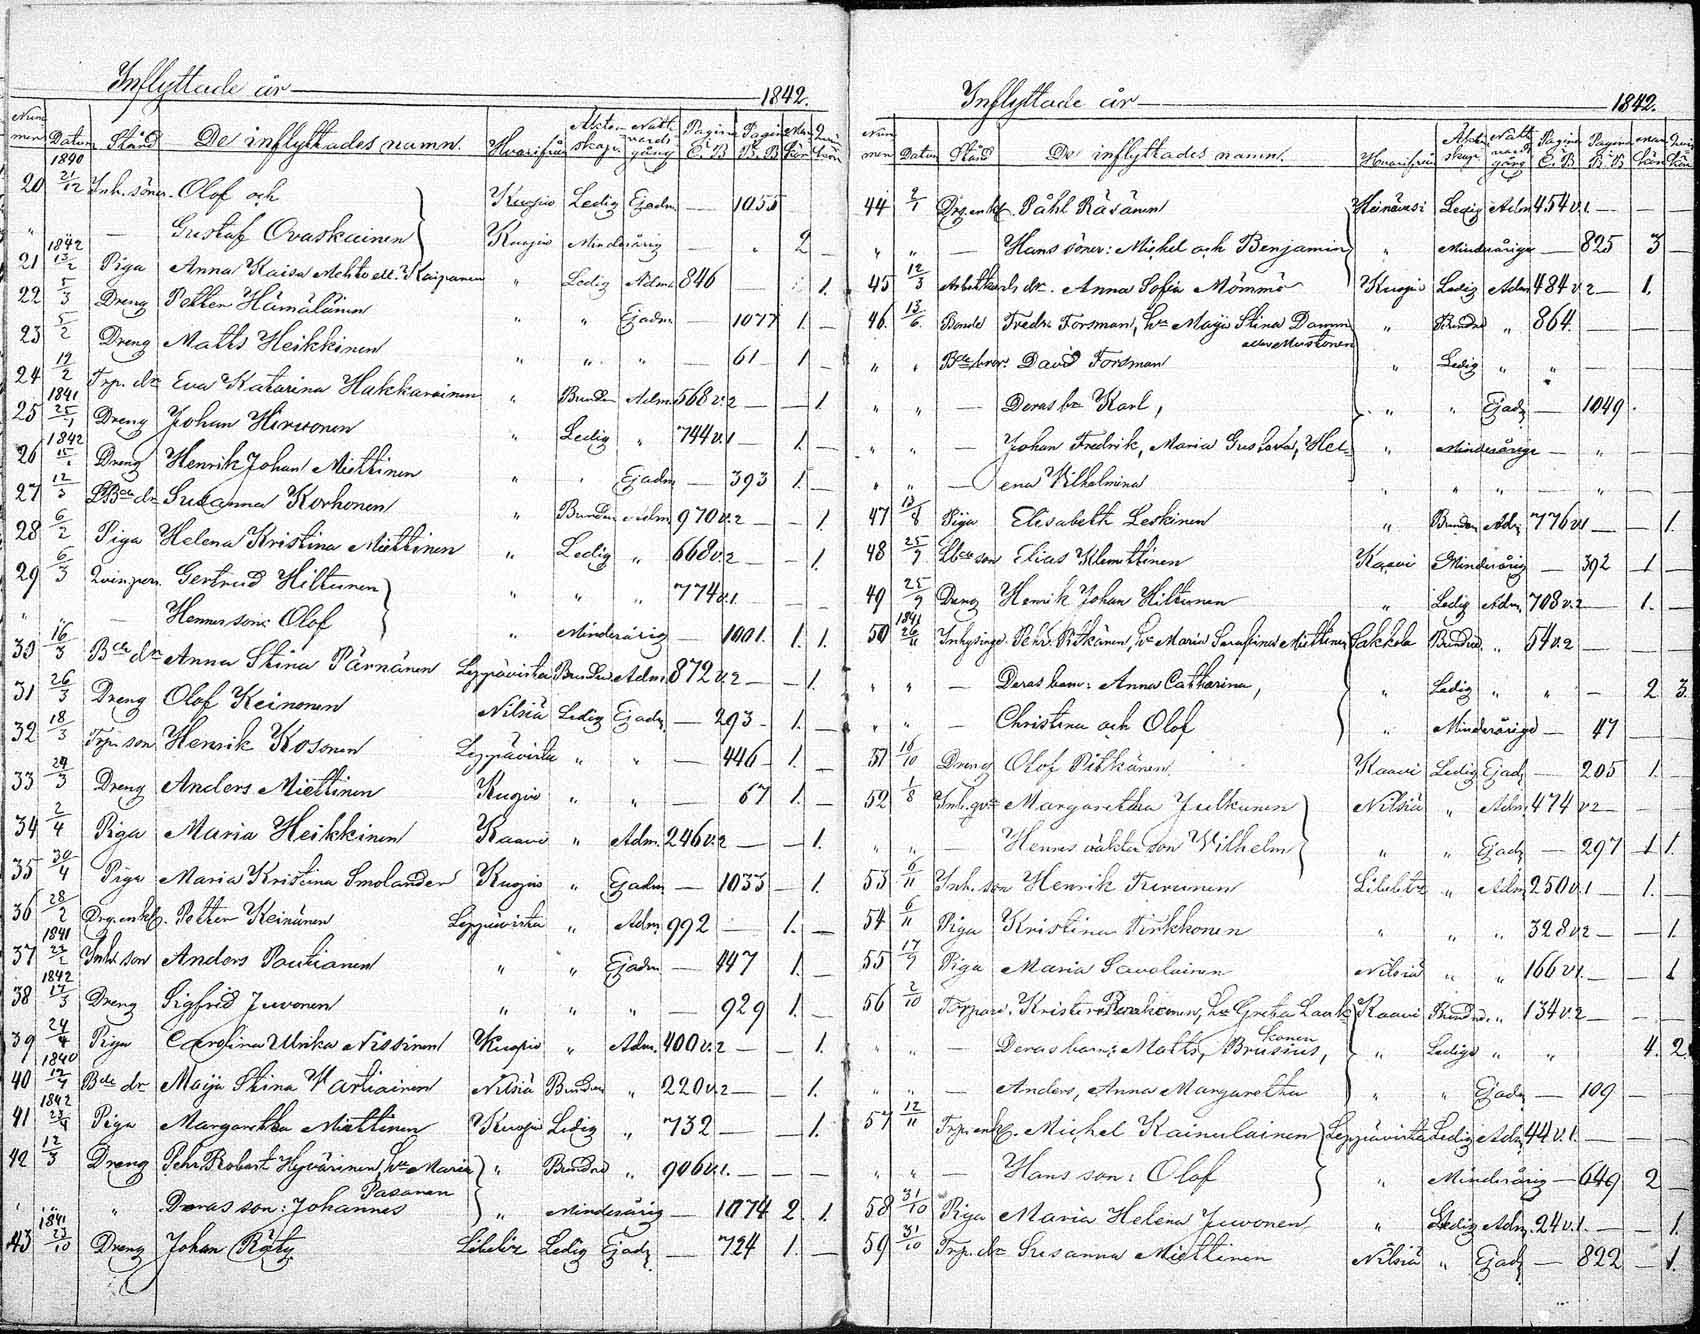 Inflyttade år 1842.
Nummer Datum Stånd De inflyttades namn. Hvarifrån Äktenskap. Nattvardsgång Pagina C.B Pagina B.B Mankön Qvinkön
1840
20 21/12 Inh. söner Olof och Kuopio Ledig Ejadm — 1055
" " — Gustaf Ovaskainen Kuopio Minderårig — " 2 —
1842
21 13/2 Piga Anna Kaisa Mehto ell. Kaipanen " Ledig Adm. 846 — 1.
22 5/3 Dreng Petter Hämäläinen " " Ejadm — 1077 1. —
23 5/2 Dreng Matts Heikkinen " " " — 61 1 —
24 19/2 Trp. dr Eva Katarina Hakkarainen " Bunden Adm. 568 v. 2 — — 1.
1841
25 25/1 Dreng Johan Hirvonen " Ledig " 744 v. 1 — 1. —
1842
26 15/1 Dreng Henrik Johan Miettinen " " Ejadm — 393 1. —
27 12/3 Bde dr Susanna Korhonen " Bunden Adm. 970 v. 2 — — 1.
28 6/2 Piga Helena Kristina Miettinen " Ledig " 668 v. 2 — — 1.
29 6/3 Qvin.pers. Gertrud Hiltunen " " " 774 v. 1. — — —
" " — Hennes son: Olof " Minderårig — 1001. 1. 1.
30 16/3 Bde dr Anna Stina Pärnänen Leppävirta Bunden Adm. 872 v. 2 — — 1.
31 26/3 Dreng Olof Keinonen Nilsiä Ledig Ejadm — 293 — 1. —
32 18/3 Trp. son Henrik Kosonen Leppävirta " " — 446 1. —
33 24/3 Dreng Anders Miettinen Kuopio " " — 67 1. —
34 2/4 Piga Maria Heikkinen Kaavi " Adm. 246 v. 2 — — 1.
35 30/4 Piga Maria Kristina Smolander Kuopio " Ejadm — 1033 — 1.
36 28/2 Drg. enkl. Petter Keinänen Leppävirta " Adm. 992 — 1. —
1841
37 22/2 Inh. son Anders Pautianen " " Ejadm — 447 1. —
1842
38 17/3 Dreng Sigfrid Juvonen " " " — 929 1. —
39 24/4 Piga Carolina Ulrika Nissinen Kuopio " Adm. 400 v. 2 — — 1.
1840
40 12/4 Bde dr Maija Stina Vartiainen Nilsiä Bunden " 220 v. 2 — — 1.
1842
41 23/4 Piga Margaretha Miettinen Kuopio Ledig " 732 — — 1.
42 12/3 Dreng Pehr Robert Hyvärinen, hu Maria " Bundne " 906 v. 1. — — —
Pasanen
" " " Deras son: Johannes " Minderårig — 1074 2. 1.
1841
43 23/10 Dreng Johan Räty Libelitz Ledig Ejadm — 724 1. —
Inflyttade år 1842.
Nummer Datum Stånd De inflyttades namn. Hvarifrån Äktenskap. Nattvardsgång Pagina C.B Pagina B.B Mankön Qvinkön
44 2/1 Drg. enkl. Påhl Räsänen Heinävesi Ledig Adm 454 v. 1. — — —
" " — Hans söner: Mickel och Benjamin " Minderåriga — 825 3 —
45 12/3 Arbetkarls dr. Anna Sofia Mömmö Kuopio Ledig Adm 484 v. 2 — 1.
46. 13/6 Bonde Fredr. Forsman, hu Maija Stina Damm " Bundne " 864. — — —
eller Mustonen
" " Bde bror David Forsman " Ledig " " — — —
" " — Deras br Karl, " " Ejadm — 1049.
" " — Johan Fredrik, Maria Gustava, Hel- " Minderåriga — " — —
" " — ena Vilhelmina " " " — " — —
47 13/8 Piga Elisabeth Leskinen " Bunden Adm 776 v. 1 — — 1.
48 25/9 Bde son Elias Klemettinen Kaavi Minderårig — 392 1 —
49 25/9 Dreng Henrik Johan Hiltunen " Ledig Adm. 708 v. 2 — 1. —
1841
50 26/11 Inhysinge Pehr Pitkänen, hu Maria Serafina Miettinen Sakkola Bundne " 54 v. 2 — — —
" " — Deras barn: Anna Catharina, " Ledig " " — 2 3.
" " — Christina och Olof " Minderåriga — 47 — —
51 16/10 Dreng Olof Pitkänen Kaavi Ledig Ejadm — 205 1. —
52 1/8 Inh. qv. Margaretha Julkunen Nilsiä " Adm. 474 v. 2 — — —
" " — Hennes oäkta son Wilhelm " " Ejadm — 297 1 1.
53 6/11 Inh. son Henrik Turunen Libelitz " Adm 250 v. 1 — 1. —
54 6/11 Piga Kristina Pirkkonen " " " 328 v. 2 — — 1.
55 17/9 Piga Maria Savolainen Nilsiä " " 166 v. 1. — — 1
56 2/10 Torpare Krister Karhunen, hu Greta Laak- Kaavi Bundne " 134 v. 2 — — —
konen
" " — Deras barn: Matts, Brusius, " Lediga " " 4. 2
— Anders, Anna Margaretha " " Ejadm — 109 — —
57 12/11 Trp. enkl. Michel Kainulainen Leppävirta Ledig Adm 44 v. 1. — — —
" " — Hans son: Olof " Minderårig — 649 2 —
58 31/10 Piga Maria Helena Juvonen " Ledig Adm. 24 v. 1. — — 1.
59 31/10 Trp. dr Susanna Miettinen Nilsiä " Ejadm — 822 — 1.